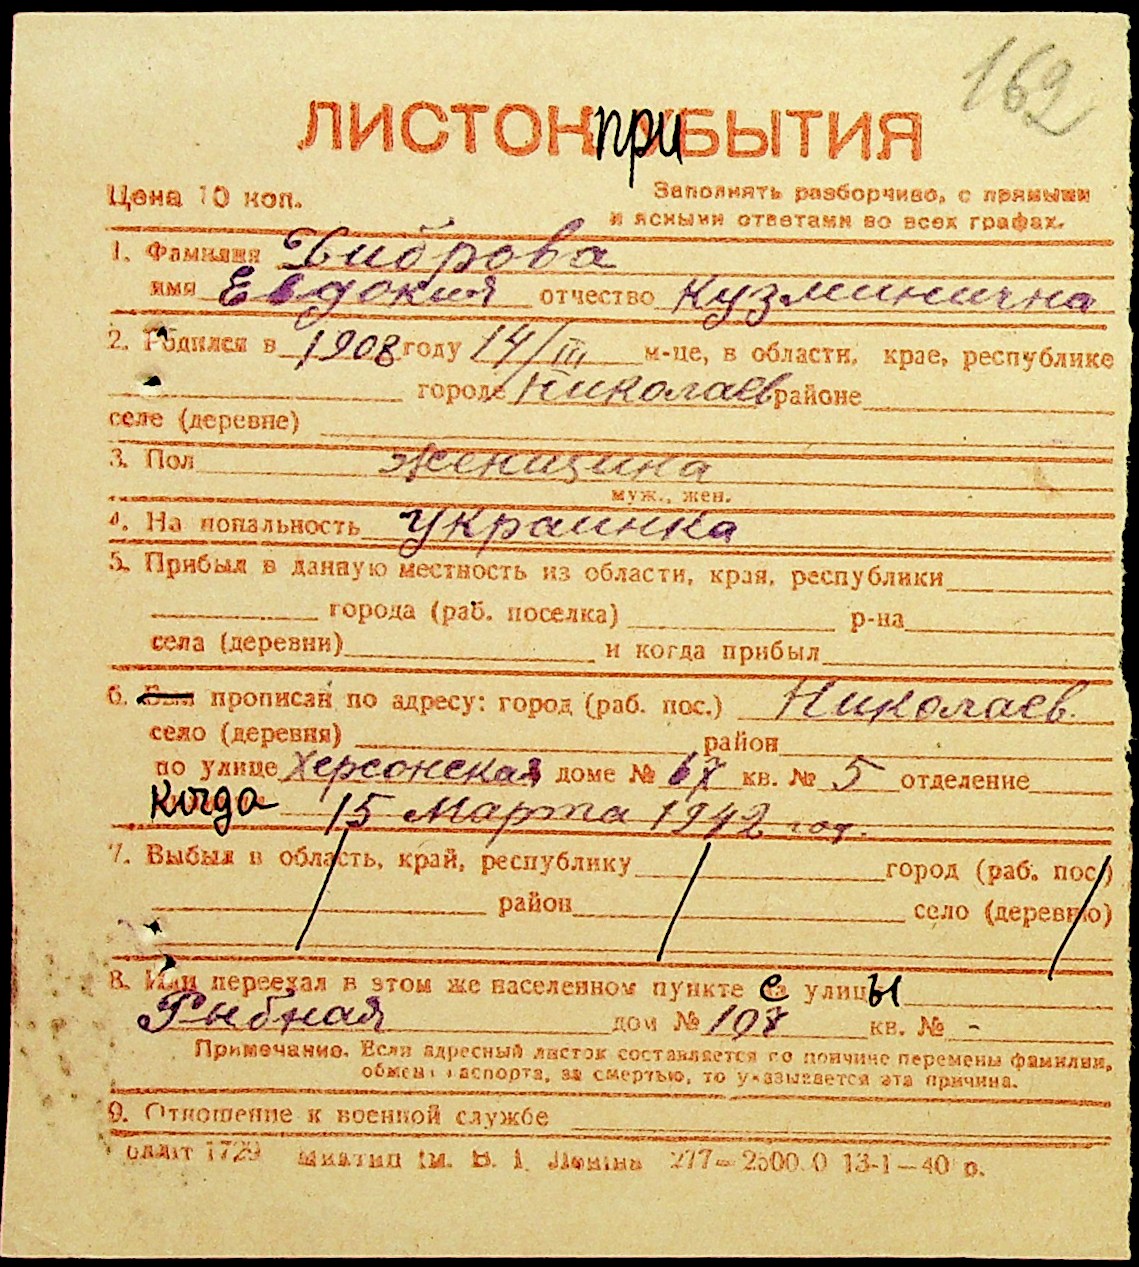 162
ЛИСТОК ПРИБЫТИЯ
Цена 10 коп.
Заполнять разборчиво, с прямыми
и ясными ответами во всех графах.
1. Фамилия Диброва
имя Евдокия отчество Кузминична
2. Родился в 1908 году 14/III м-це, в области, крае, республике
городе Николаев районе
селе (деревне)
3. Пол женщина
муж., жен.
4. Национальность украинка
5. Прибыл в данную местность из области, края, республики
города (раб. поселка) р-на
села (деревни) и когда прибыл
6. Был прописан по адресу: город (раб. пос.) Николаев
село (деревня) район
по улице Херсонская доме № 67 кв. № 5 отделение
когда 15 марта 1942 год.
7. Выбыл в область, край, республику город (раб. пос.)
район село (деревню)
8. Или переехал в этом же населенном пункте с улицы
Рыбная дом № 108 кв. № -
Примечание. Если адресный листок составляется по причине перемены фамилии,
обмена паспорта, за смертью, то указывается эта причина.
9. Отношение к военной службе
1729 ім. В. І. Леніна 277—2500.0 13-1—40 р.